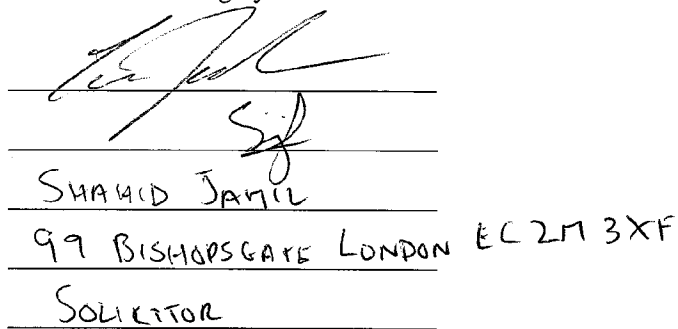 SHAHID JAMIL
99 BISHOPSGATE LONDON EC2M 3XF
SOLICITOR